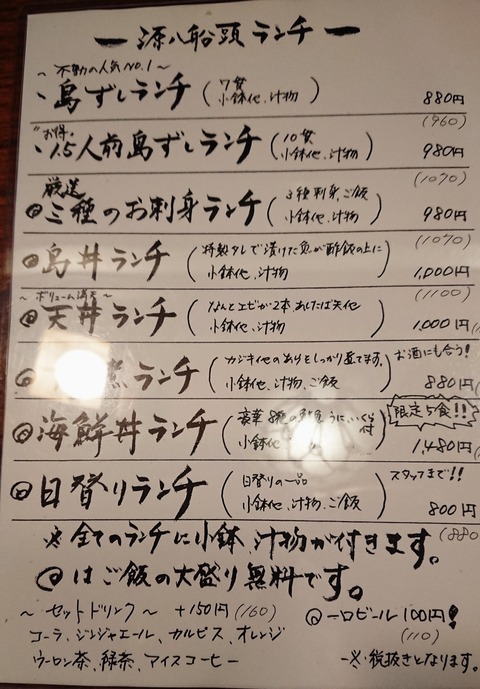 ー 源八船頭ランチ ー
～ 不動の人気NO.1 ～
・島ずしランチ (7貫 小鉢他、汁物) 880円
(960)
"お得"
・1.5人前島ずしランチ (10貫 小鉢他、汁物) 980円
(1070)
厳選
@三種のお刺身ランチ (3種刺身、ご飯 小鉢他、汁物) 980円
(1070)
@島丼ランチ (特製タレで漬けた魚が酢飯の上に 小鉢他、汁物) 1,000円
(1100)
～ ボリューム満天 ～
@天丼ランチ (なんとエビが2本 あしたば天他 小鉢他、汁物) 1,000円
お酒にも合う!
煮ランチ (カジキ他のあらをしっかり煮てます。 小鉢他、汁物、ご飯) 880円
限定5食!!
@海鮮丼ランチ (豪華8種の うに、いくら付 小鉢他 汁物) 1,480円
スタッフまで!!
@日替りランチ (日替りの一品 小鉢他、汁物、ご飯) 800円
(880
※全てのランチに小鉢、汁物が付きます。
@はご飯の大盛り無料です。
～ セットドリンク ～ +150円(160)
@一口ビール100円!
(110)
コーラ、ジンジャエール、カルピス、オレンジ
ウーロン茶、緑茶、アイスコーヒー
-※税抜きとなります。